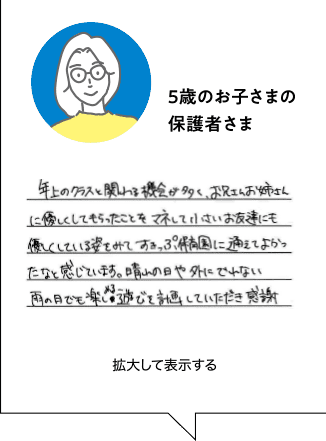 5歳のお子さまの
保護者さま
年上のクラスと関わる機会が多く、お兄さんお姉さん
に優しくしてもらったことをマネして小さいお友達にも
優しくしている姿をみて すきっぷ保育園に通えてよかっ
たなと感じています。晴れの日や外にでれない
雨の日でも楽しめる遊びを計画していただき感謝
拡大して表示する